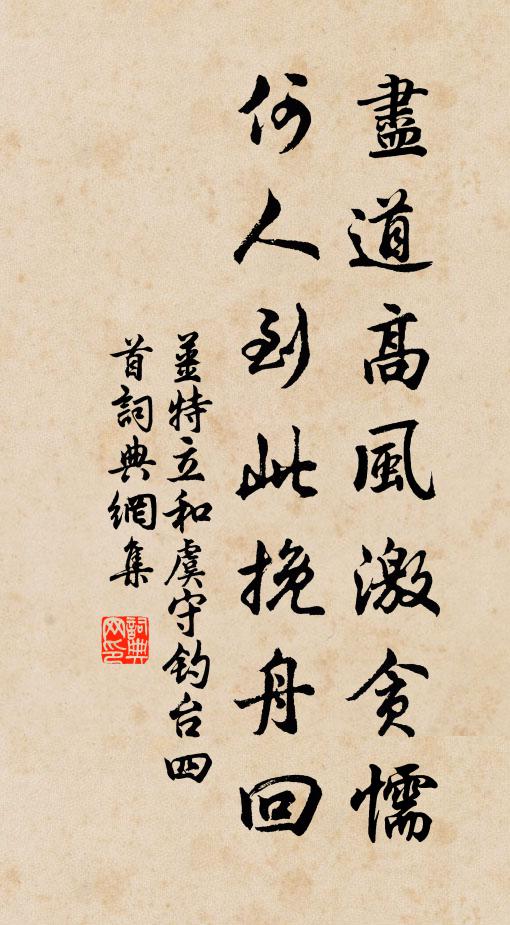 盡道高風激貪懦
何人到此挽舟回
薑特立和虞守釣台四
首詞典網集
詞典
网印